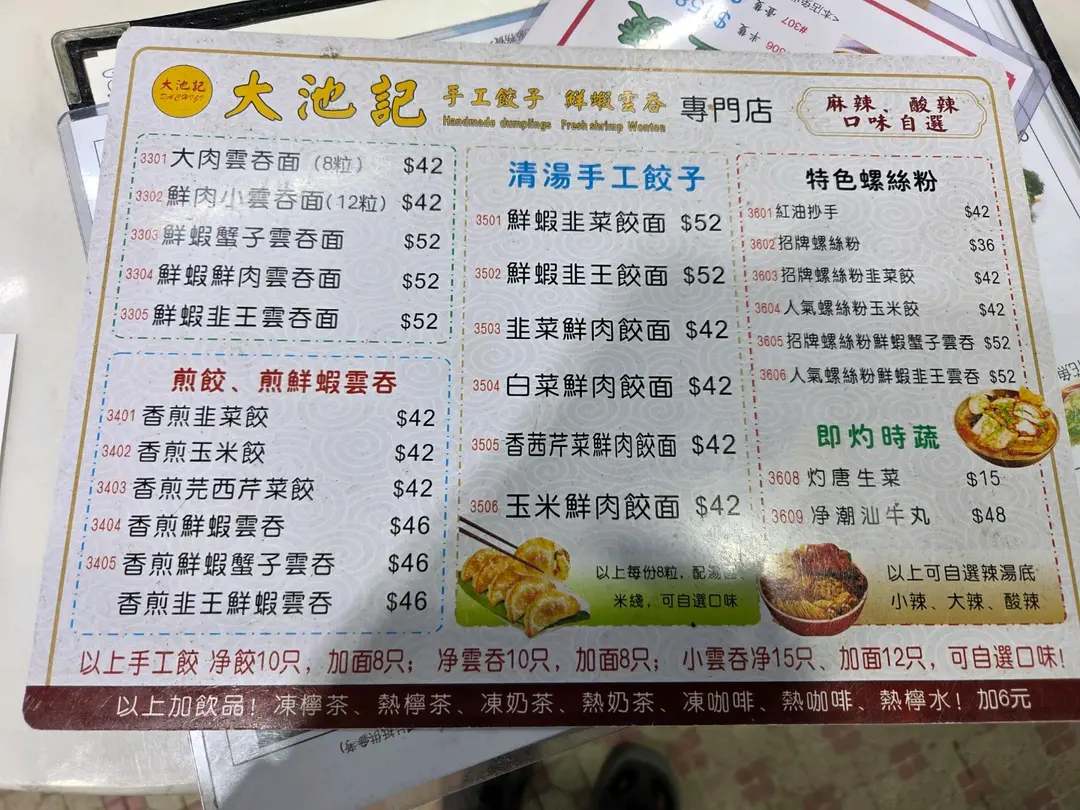 大池記
DACHIJI
大池記
手工餃子 鮮蝦雲吞
Handmade dumplings Fresh shrimp Wonton
專門店
麻辣、酸辣
口味自選
3301 大肉雲吞面(8粒) $42
3302 鮮肉小雲吞面(12粒) $42
3303 鮮蝦蟹子雲吞面 $52
3304 鮮蝦鮮肉雲吞面 $52
3305 鮮蝦韭王雲吞面 $52
煎餃、煎鮮蝦雲吞
3401 香煎韭菜餃 $42
3402 香煎玉米餃 $42
3403 香煎芫西芹菜餃 $42
3404 香煎鮮蝦雲吞 $46
3405 香煎鮮蝦蟹子雲吞 $46
香煎韭王鮮蝦雲吞 $46
清湯手工餃子
3501 鮮蝦韭菜餃面 $52
3502 鮮蝦韭王餃面 $52
3503 韭菜鮮肉餃面 $42
3504 白菜鮮肉餃面 $42
3505 香茜芹菜鮮肉餃面 $42
3506 玉米鮮肉餃面 $42
以上每份8粒,配湯
米綫,可自選口味
特色螺絲粉
3601 紅油抄手 $42
3602 招牌螺絲粉 $36
3603 招牌螺絲粉韭菜餃 $42
3604 人氣螺絲粉玉米餃 $42
3605 招牌螺絲粉鮮蝦蟹子雲吞 $52
3606 人氣螺絲粉鮮蝦韭王雲吞 $52
即灼時蔬
3608 灼唐生菜 $15
3609 净潮汕牛丸 $48
以上可自選辣湯底
小辣、大辣、酸辣
以上手工餃 净餃10只,加面8只; 净雲吞10只,加面8只; 小雲吞净15只、加面12只,可自選口味!
以上加飲品! 凍檸茶、熱檸茶、凍奶茶、熱奶茶、凍咖啡、熱咖啡、熱檸水! 加6元
$158
#307